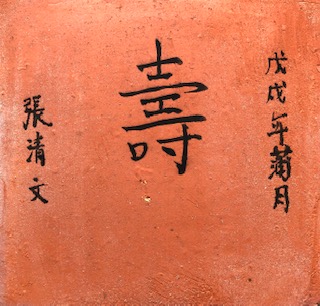 戊戌年蒲月
壽
張清文